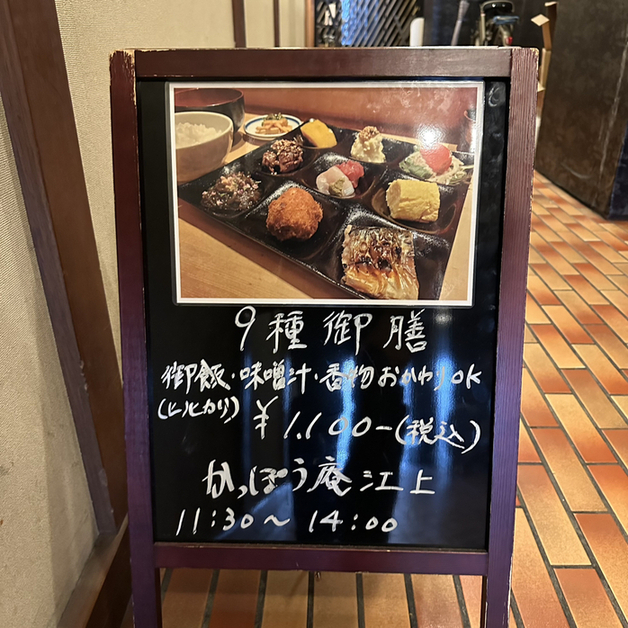 9種御膳
御飯・味噌汁・香物おかわりOK
(ヒノヒカリ)
¥1.100-(税込)
かっぽう庵江上
11:30～14:00